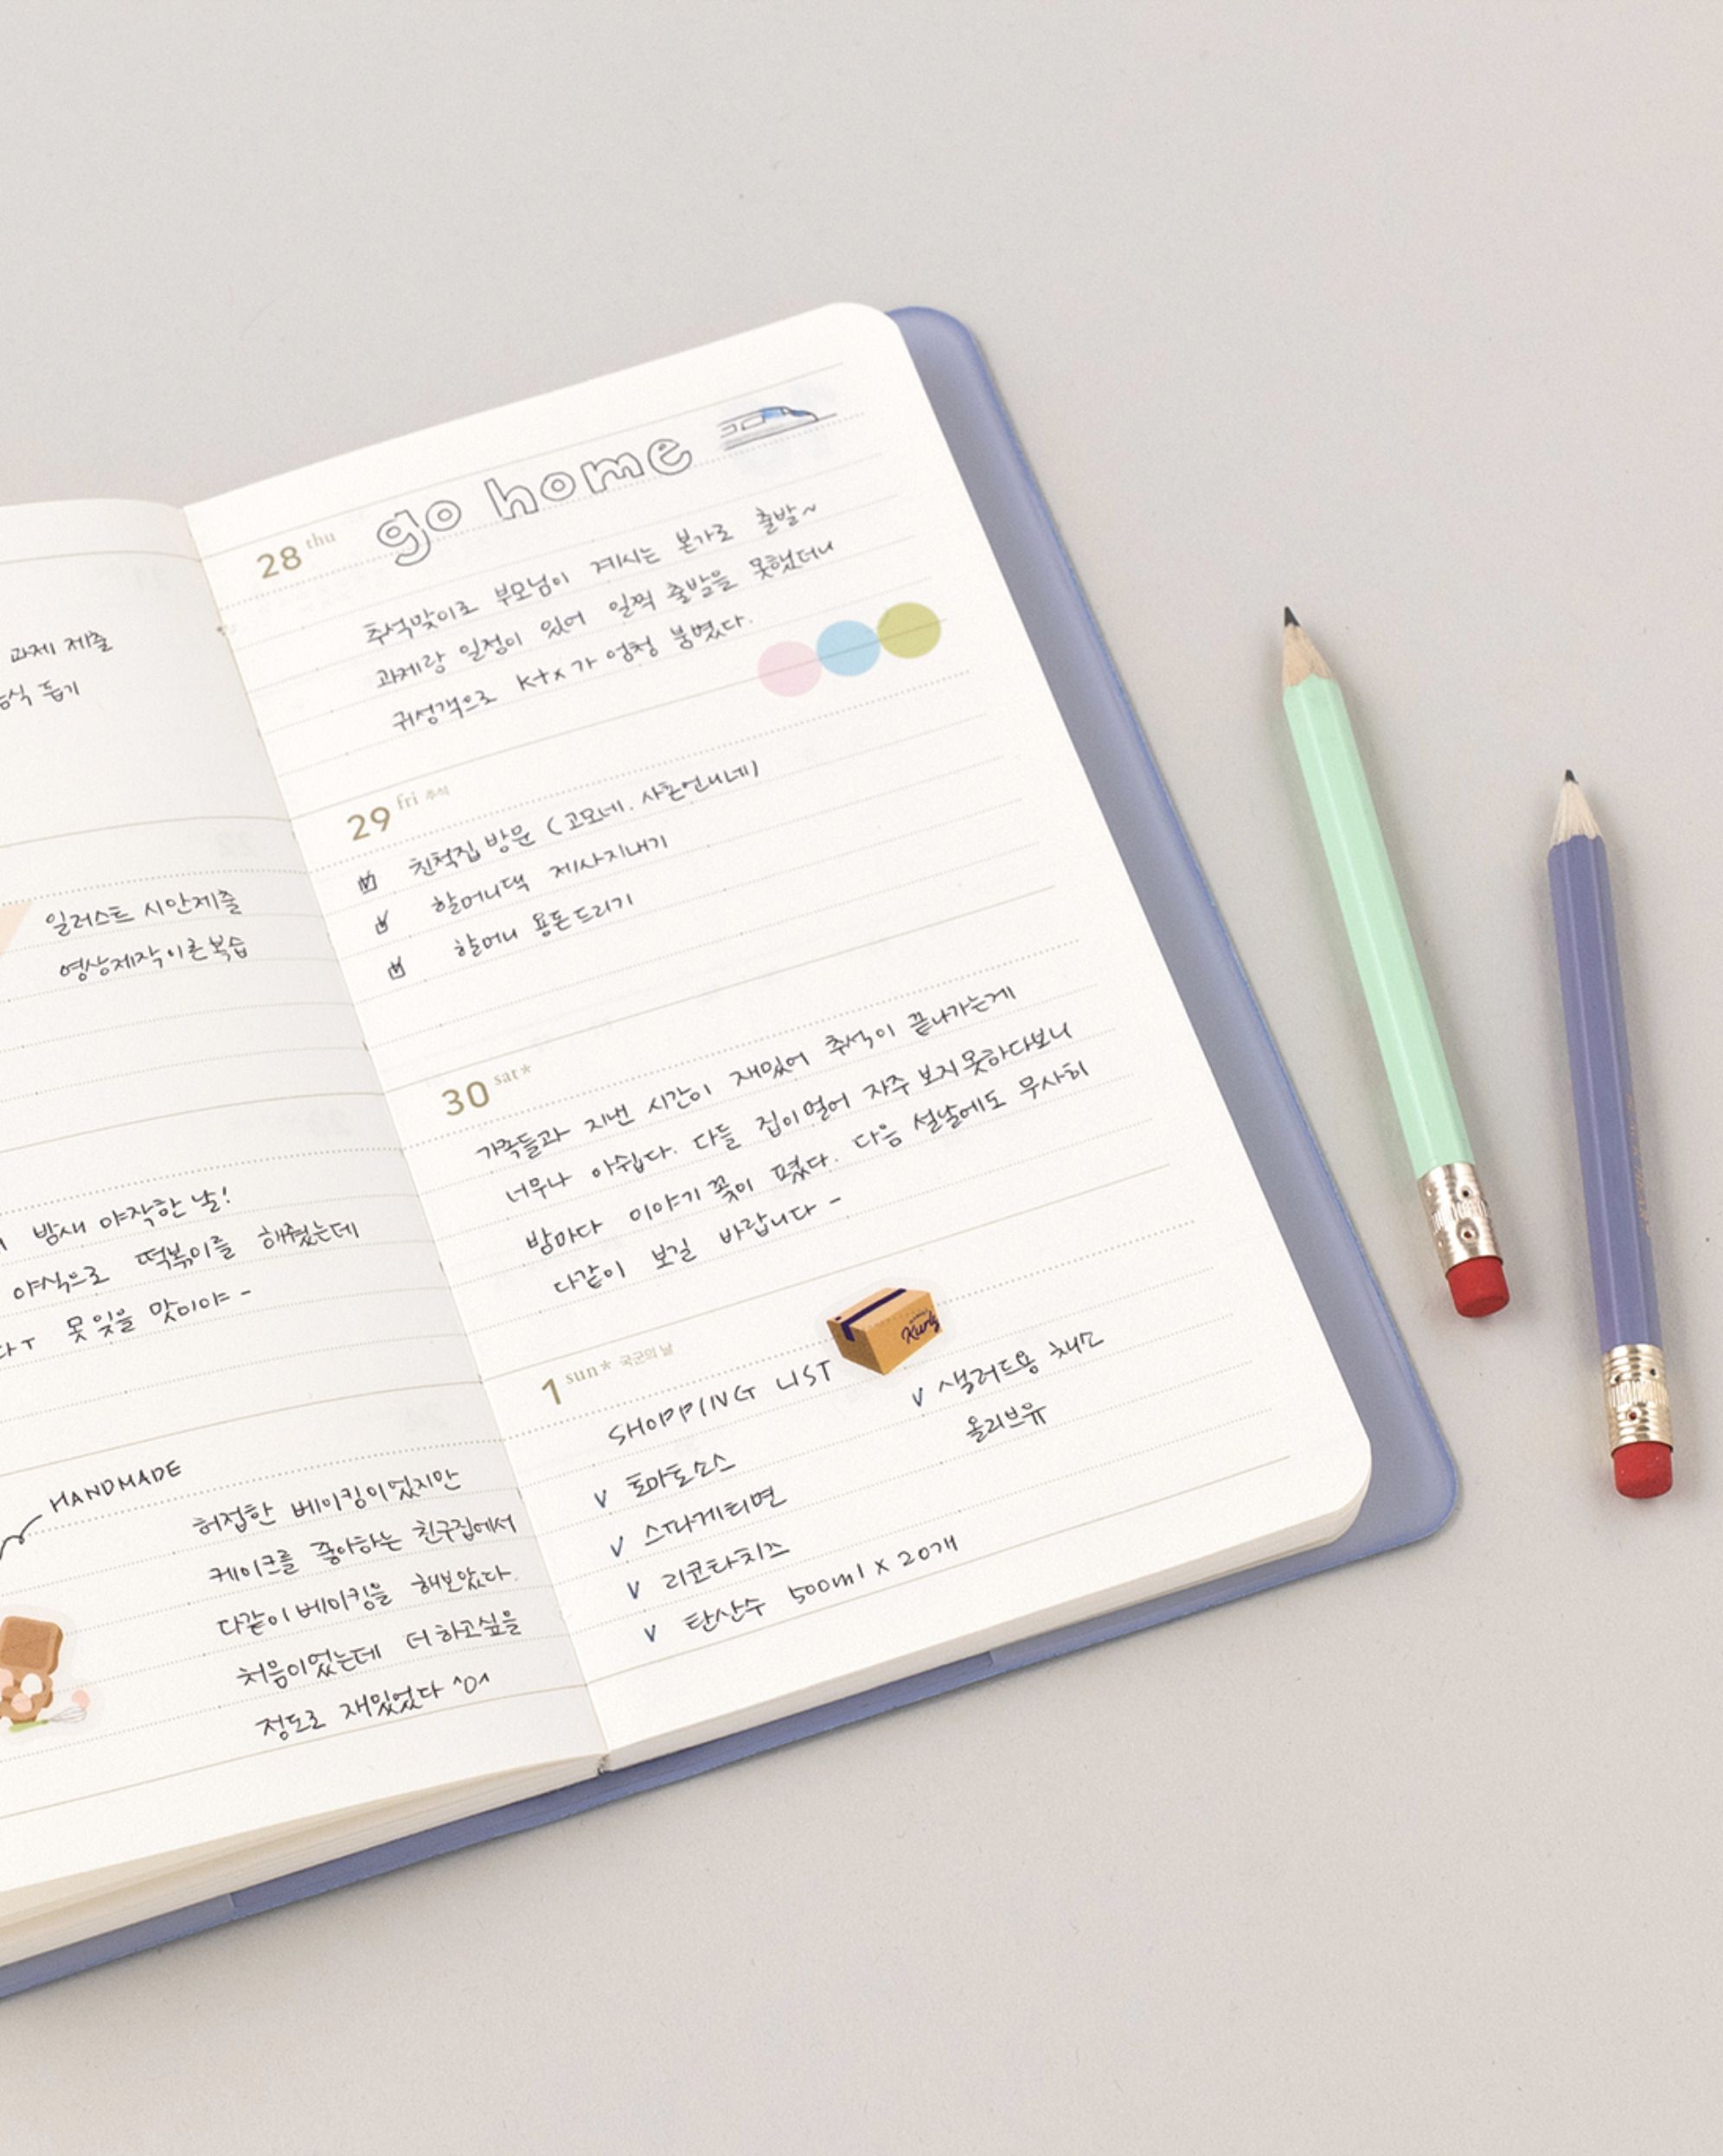 과제 제출
음식 돕기
일러스트 시안제출
영상제작이론복습
밤새 야작한 날!
야식으로 떡볶이를 해줬는데
못 잊을 맛이야 -
HANDMADE
허접한 베이킹이었지만
케이크를 좋아하는 친구집에서
다같이 베이킹을 해보았다.
처음이었는데 더 하고싶을
정도로 재밌었다 ^0^
28 thu go home
추석맞이로 부모님이 계시는 본가로 출발~
과제랑 일정이 있어 일찍 출발을 못했더니
귀성객으로 ktx가 엄청 붐볐다.
29 fri 추석
친척집 방문 (고모네. 사촌언니네)
할머니댁 제사지내기
할머니 용돈드리기
30 sat*
가족들과 지낸 시간이 재밌어 추석이 끝나가는게
너무나 아쉽다. 다들 집이 멀어 자주 보지 못하다보니
밤마다 이야기 꽃이 폈다. 다음 설날에도 무사히
다같이 보길 바랍니다 -
1 sun* 국군의 날
SHOPPING LIST
Kurly
v 토마토소스
v 스파게티면
v 리코타치즈
v 탄산수 500ml x 20개
v 샐러드용 채소
올리브유